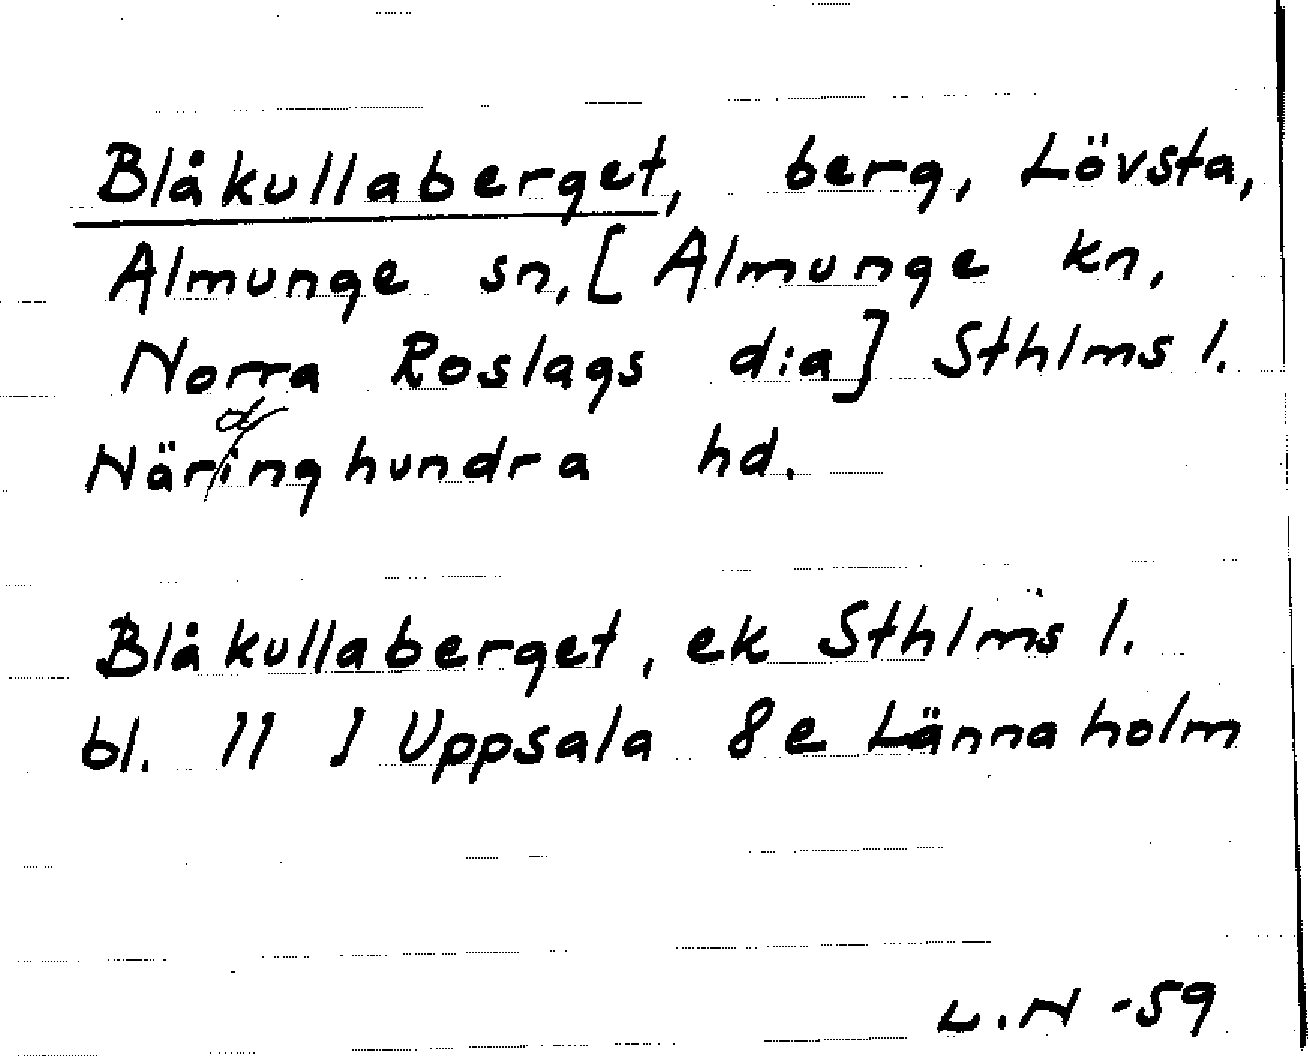 Blåkullaberget, berg, Lövsta,
Almunge sn, [Almunge kn,
Norra Roslags d:a] Sthlms l.
d
Näringhundra hd.
Blåkullaberget, ek Sthlms l.
bl. 11 J Uppsala 8e Länna holm
L.N -59